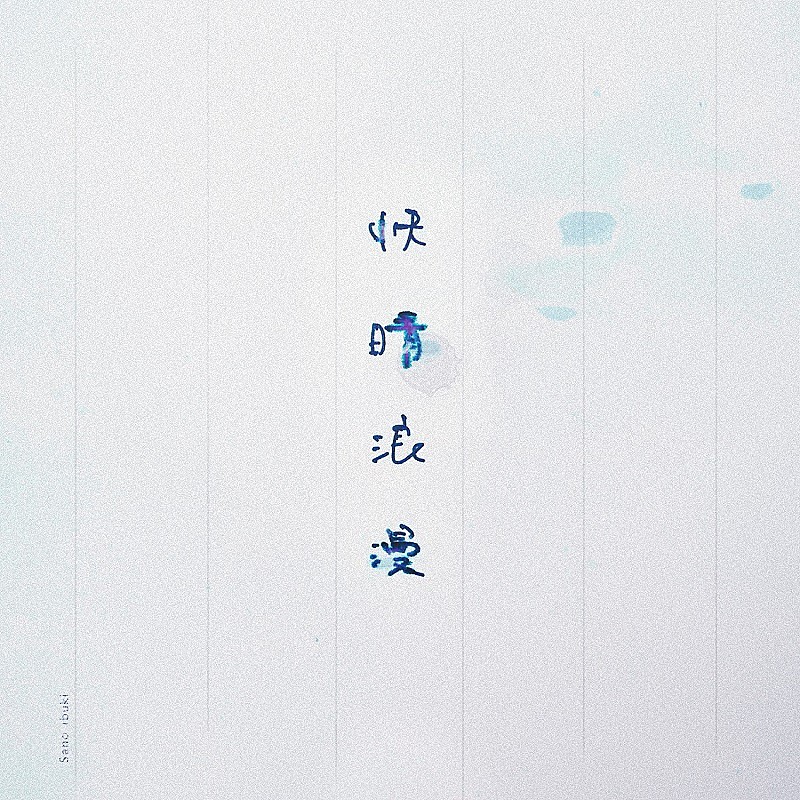 快晴浪漫
Sano ibuki